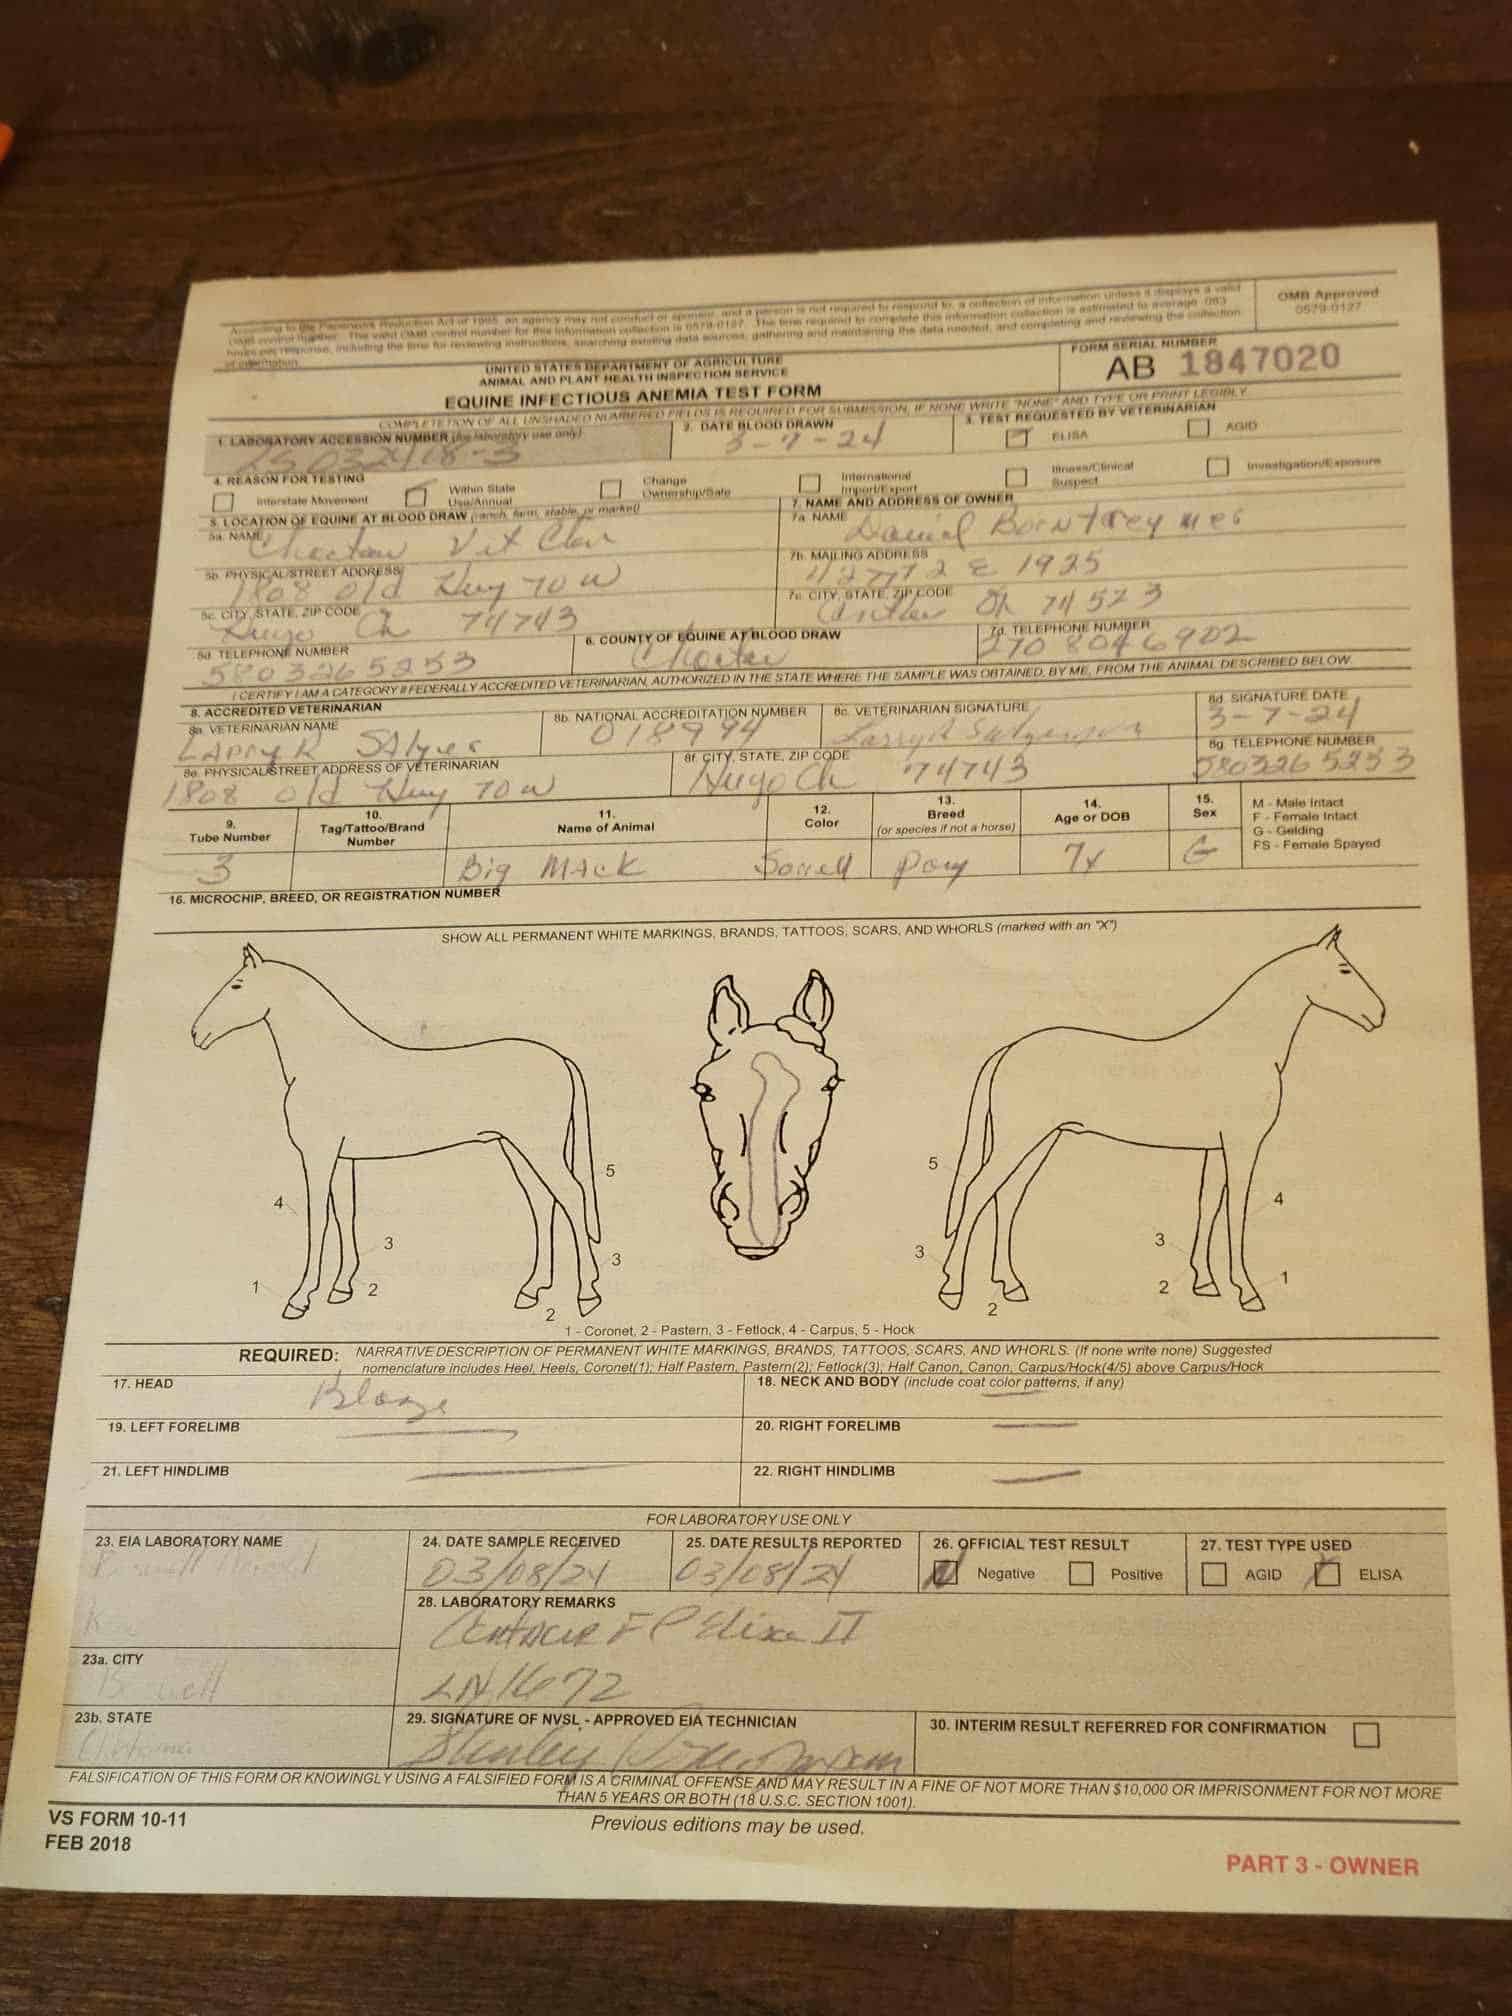 According to the Paperwork Reduction Act of 1995, an agency may not conduct or sponsor, and a person is not required to respond to, a collection of information unless it displays a valid
OMB control number. The valid OMB control number for this information collection is 0579-0127. The time required to complete this information collection is estimated to average .083
hours per response, including the time for reviewing instructions, searching existing data sources, gathering and maintaining the data needed, and completing and reviewing the collection
of information.
OMB Approved
0579-0127
UNITED STATES DEPARTMENT OF AGRICULTURE
ANIMAL AND PLANT HEALTH INSPECTION SERVICE
EQUINE INFECTIOUS ANEMIA TEST FORM
FORM SERIAL NUMBER
AB 1847020
COMPLETETION OF ALL UNSHADED NUMBERED FIELDS IS REQUIRED FOR SUBMISSION, IF NONE WRITE "NONE" AND TYPE OR PRINT LEGIBLY
1. LABORATORY ACCESSION NUMBER (for laboratory use only)
2. DATE BLOOD DRAWN
3-7-24
3. TEST REQUESTED BY VETERINARIAN
ELISA
AGID
4. REASON FOR TESTING
Interstate Movement
Within State
Use/Annual
Change
Ownership/Sale
International
Import/Export
Illness/Clinical
Suspect
Investigation/Exposure
5. LOCATION OF EQUINE AT BLOOD DRAW (ranch, farm, stable, or market)
5a. NAME
Choctaw Vet
5b. PHYSICAL/STREET ADDRESS
1808 old Hwy 70 W
5c. CITY, STATE, ZIP CODE
Hugo Ok 74743
5d. TELEPHONE NUMBER
580 326 5253
6. COUNTY OF EQUINE AT BLOOD DRAW
Choctaw
7. NAME AND ADDRESS OF OWNER
7a. NAME
Daniel Borntreymer
7b. MAILING ADDRESS
E 1925
7c. CITY, STATE, ZIP CODE
Antlers Ok 74523
7d. TELEPHONE NUMBER
270 804 6902
I CERTIFY I AM A CATEGORY II FEDERALLY ACCREDITED VETERINARIAN, AUTHORIZED IN THE STATE WHERE THE SAMPLE WAS OBTAINED, BY ME, FROM THE ANIMAL DESCRIBED BELOW.
8. ACCREDITED VETERINARIAN
8a. VETERINARIAN NAME
LARRY R Salyer
8b. NATIONAL ACCREDITATION NUMBER
018994
8c. VETERINARIAN SIGNATURE
8d. SIGNATURE DATE
3-7-24
8e. PHYSICAL/STREET ADDRESS OF VETERINARIAN
1808 old Hwy 70 W
8f. CITY, STATE, ZIP CODE
Hugo Ok 74743
8g. TELEPHONE NUMBER
580326 5253
9. Tube Number
10. Tag/Tattoo/Brand Number
11. Name of Animal
12. Color
13. Breed (or species if not a horse)
14. Age or DOB
15. Sex
M - Male Intact
F - Female Intact
G - Gelding
FS - Female Spayed
3 Big MAcK Sorrell Pony 7y G
16. MICROCHIP, BREED, OR REGISTRATION NUMBER
SHOW ALL PERMANENT WHITE MARKINGS, BRANDS, TATTOOS, SCARS, AND WHORLS (marked with an "X")
5 5
4 4
3 3 3 3
1 2 2 2 2 1
1 - Coronet, 2 - Pastern, 3 - Fetlock, 4 - Carpus, 5 - Hock
REQUIRED: NARRATIVE DESCRIPTION OF PERMANENT WHITE MARKINGS, BRANDS, TATTOOS, SCARS, AND WHORLS. (If none write none) Suggested
nomenclature includes Heel, Heels, Coronet(1); Half Pastern, Pastern(2); Fetlock(3); Half Canon, Canon, Carpus/Hock(4/5) above Carpus/Hock
17. HEAD
Blaze
18. NECK AND BODY (include coat color patterns, if any)
19. LEFT FORELIMB
20. RIGHT FORELIMB
21. LEFT HINDLIMB
22. RIGHT HINDLIMB
FOR LABORATORY USE ONLY
23. EIA LABORATORY NAME
24. DATE SAMPLE RECEIVED
03/08/24
25. DATE RESULTS REPORTED
03/08/24
26. OFFICIAL TEST RESULT
Negative
Positive
27. TEST TYPE USED
AGID
ELISA
28. LABORATORY REMARKS
II
23a. CITY
23b. STATE
29. SIGNATURE OF NVSL - APPROVED EIA TECHNICIAN
30. INTERIM RESULT REFERRED FOR CONFIRMATION
FALSIFICATION OF THIS FORM OR KNOWINGLY USING A FALSIFIED FORM IS A CRIMINAL OFFENSE AND MAY RESULT IN A FINE OF NOT MORE THAN $10,000 OR IMPRISONMENT FOR NOT MORE
THAN 5 YEARS OR BOTH (18 U.S.C. SECTION 1001).
VS FORM 10-11
FEB 2018
Previous editions may be used.
PART 3 - OWNER